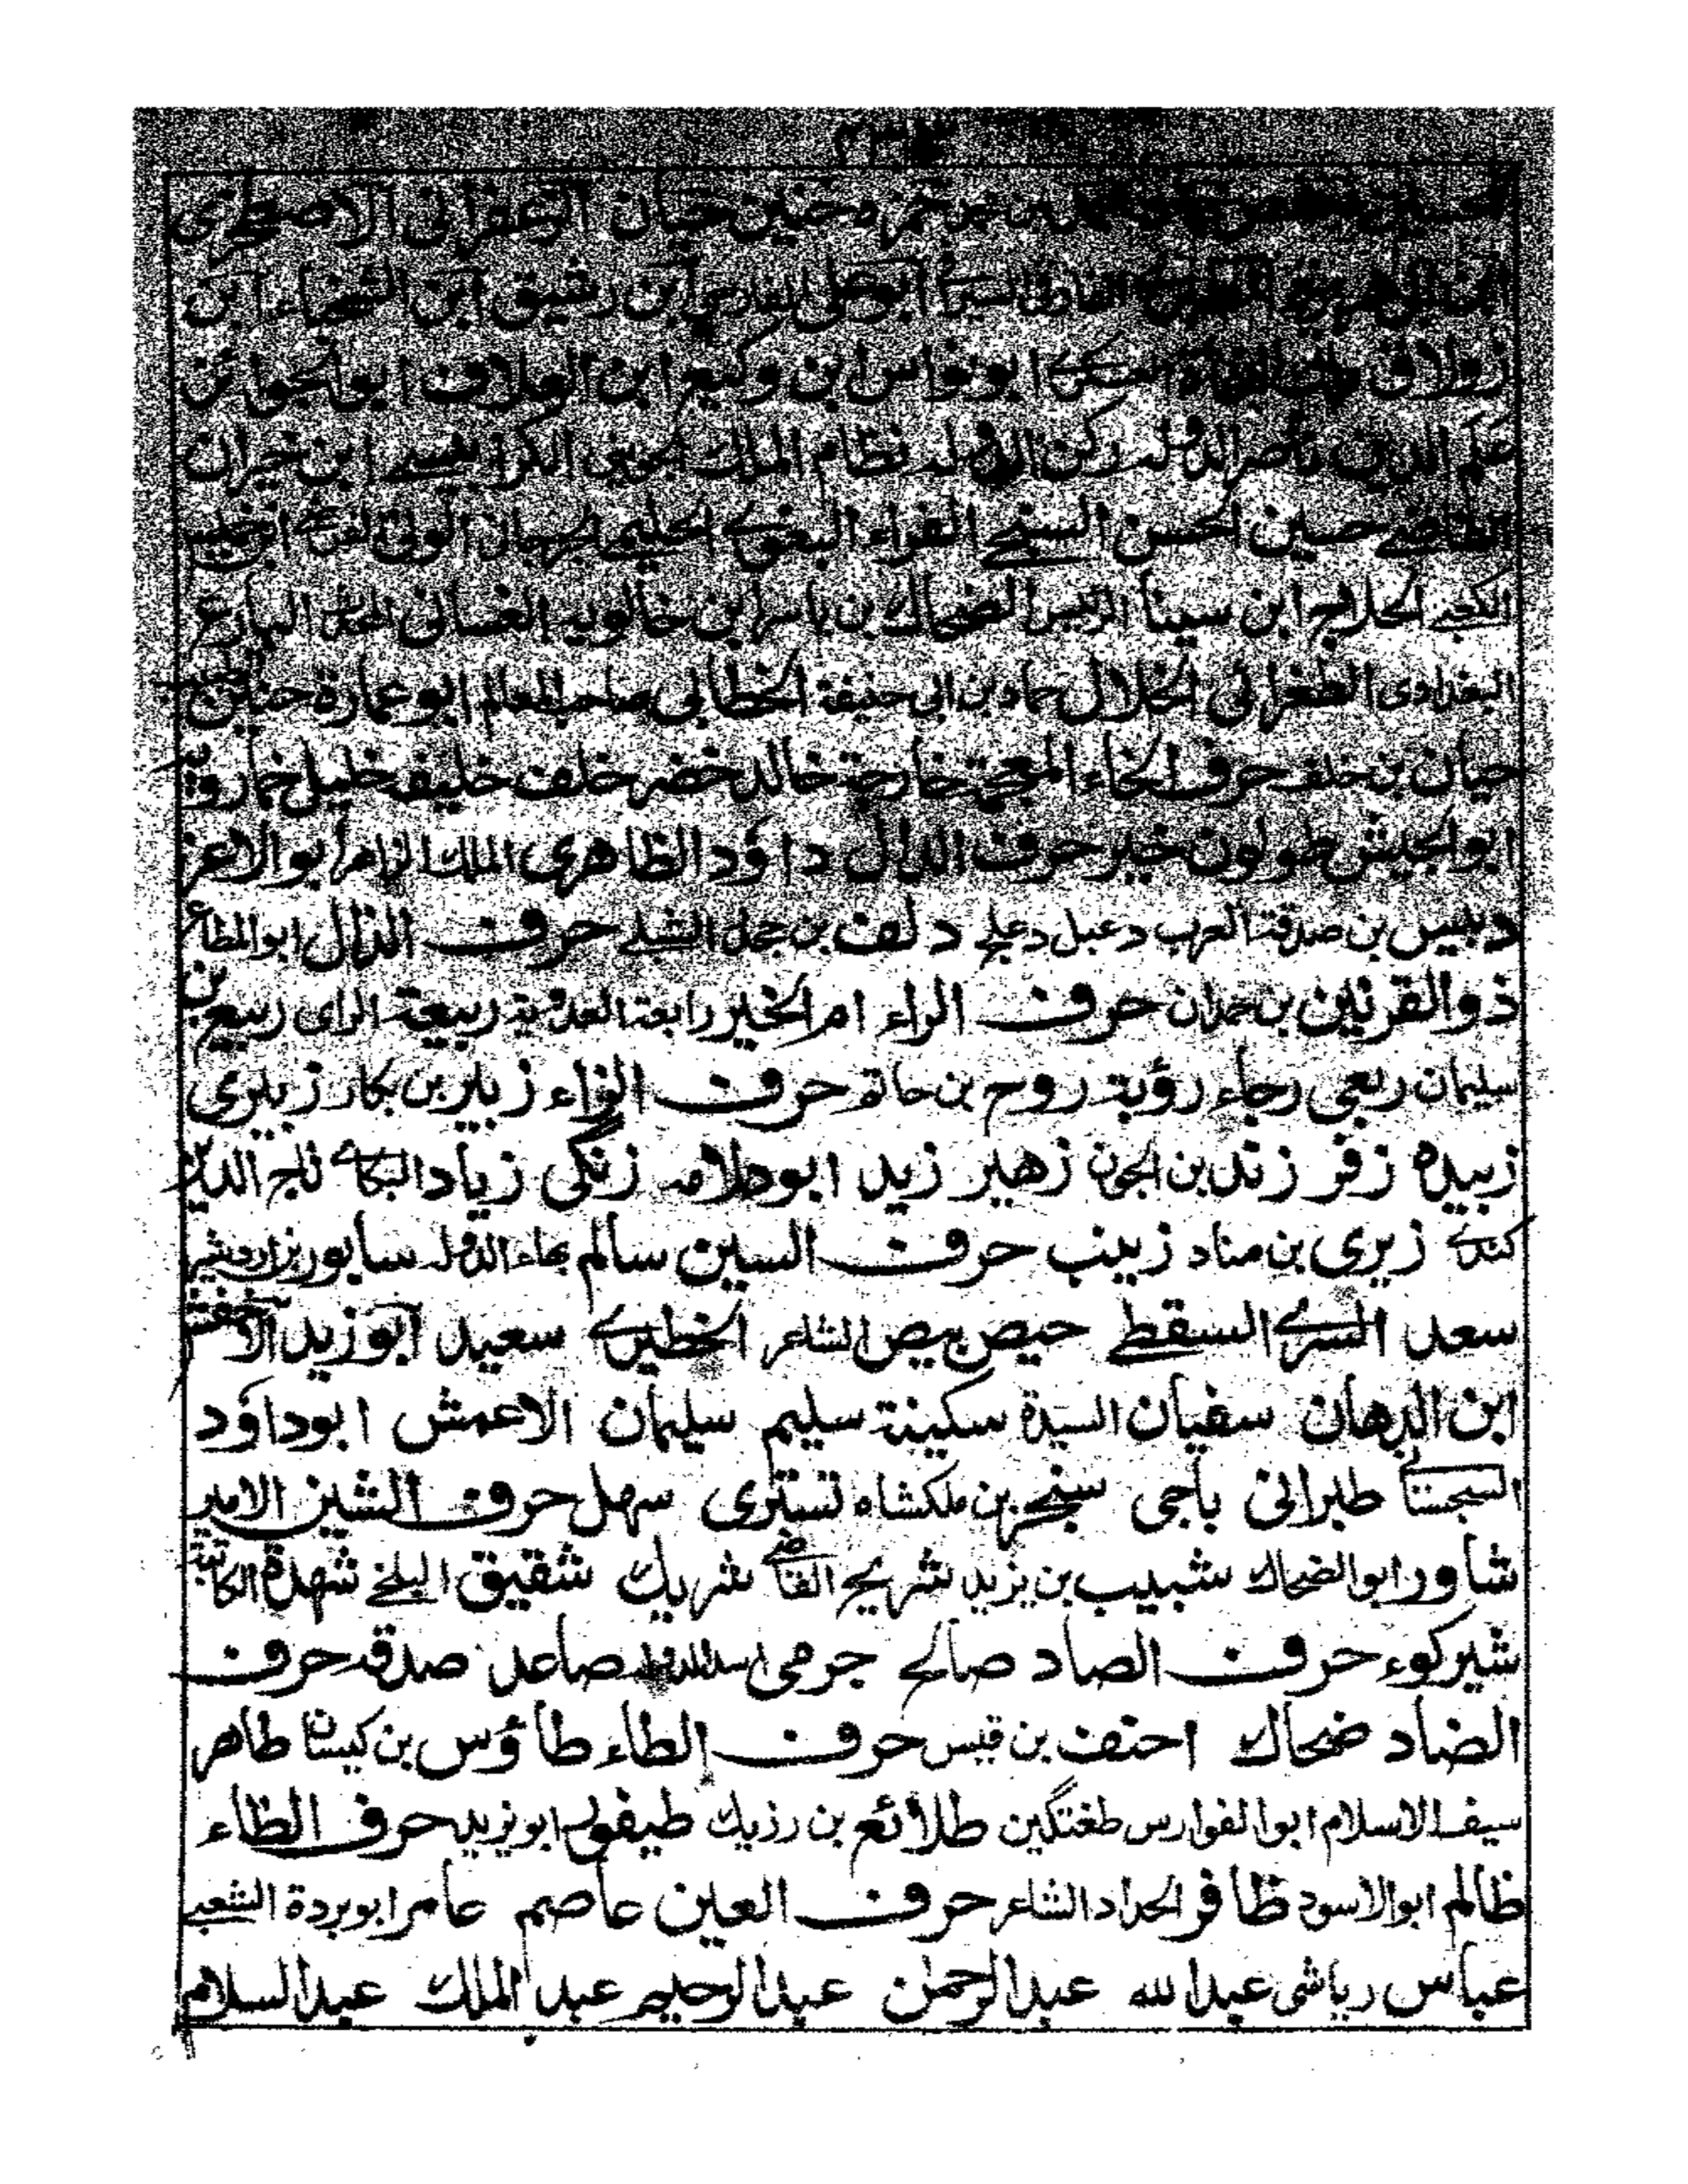 حمزه حنين حيان الزعفرانى الاصطخرى
ابو على الفارسى ابن رشيق ابن الشخباء ابن
زولاق العسكرى ابو نواس ابن وكيع ابن العلاف ابو الجوائز
علم الدين ناصر الدوله ركن الدوله نظام الملك جوينى الكرابيسے ابن خيران
القاضے حسين الحسن السنجے الفراء البغوى الحليمے الونى ابن خميس
الكعبے الحلاج ابن سينا الرئيس الضحاك بن ياسر ابن خالويه الغسانى البارع
البغدادى الطغرائى الخلال حماد بن ابى حنيفة الخطابى صاحب المعالم ابو عمارة حنين
حيان بن خلف حرف الخاء المعجمة خارجة خالد خضر خلف خليفه خليل خمارويه
ابو الجيش طولون خير حرف الدال داؤد الظاهرى الملك الزاهر ابو الاعز
دبيس بن صدقة العرب دعبل دعلج دلف بن جحدر الشبلے حرف الذال ابو المطاع
ذو القرنين بن حمدان حرف الراء ام الخير رابعة العدوية ربيعة الراى ربيع بن
سليمان ربعى رجاء رؤبة روح بن حاتم حرف الزاء زبير بن بكار زبيرى
زبيده زفر زند بن الجون زهير زيد ابو دلامه زنگى زياد البكائے تاج الدين
كندے زيرى بن مناد زينب حرف السين سالم بهاء الدوله سابور بن اردشير
سعد السرے السقطے حيص بيص الشاعر الخطيرے سعيد ابو زيد الاخفش
ابن الدهان سفيان السيدة سكينة سليم سليمان الاعمش ابو داؤد
السجستانے طبرانى باجى سنجر بن ملكشاه تسترى سهل حرف الشين الامير
شاور ابو الضحاك شبيب بن يزيد شريح القاضے شريك شقيق البلخے شهدة الكاتبة
شيركوه حرف الصاد صالح جرمى اسد الدوله صاعد صدقه حرف
الضاد ضحاك احنف بن قيس حرف الطاء طاؤس بن كيسان طاهر
سيف الاسلام ابو الفوارس طغتگين طلائع بن رزيك طيفور ابو يزيد حرف الظاء
ظالم ابو الاسود ظافر الحداد الشاعر حرف العين عاصم عامر ابو بردة الشعبے
عباس رياشى عبد الله عبد الرحمن عبد الرحيم عبد الملك عبد السلام